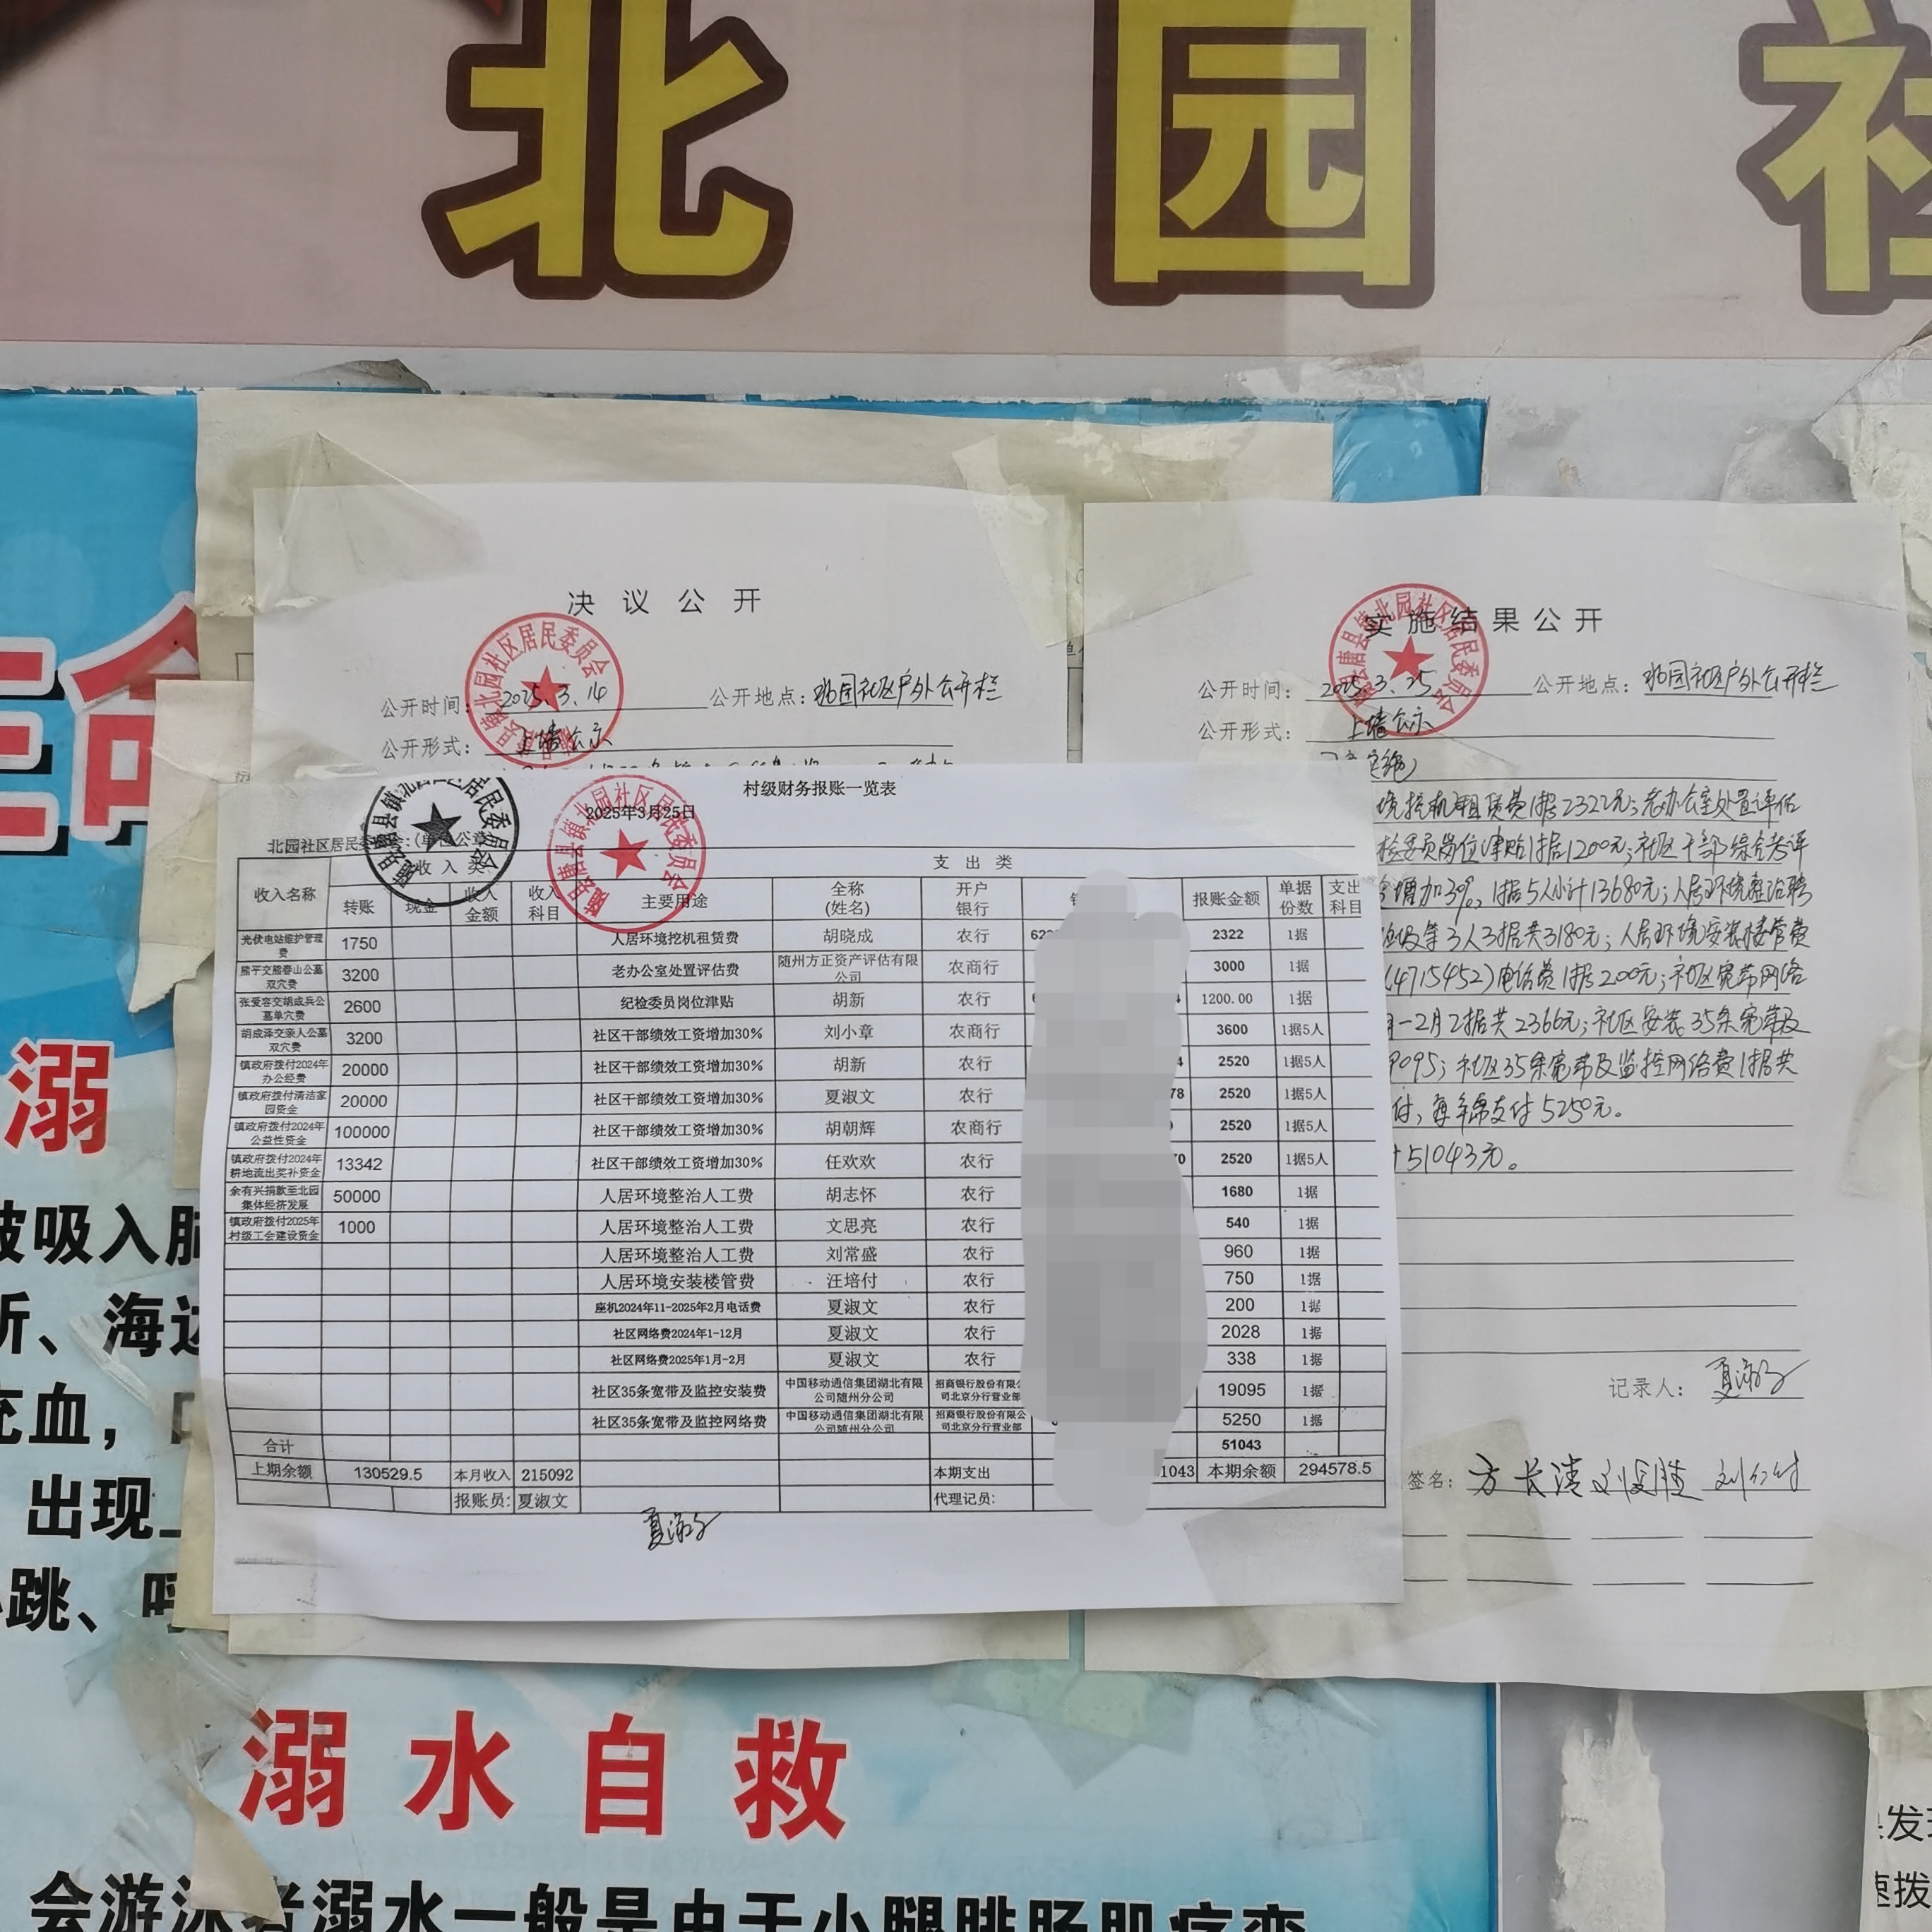 北园社
决议公开
公开时间: 2025.3.14 公开地点: 北园社区户外公开栏
公开形式: 上墙公示
实施结果公开
公开时间: 2025.3.25 公开地点: 北园社区户外公开栏
公开形式: 上墙公示
境挖机租赁费1据2322元;老办公室处置评估
检委员岗位津贴1据1200元;社区干部综合考评
增加30%,1据5人小计13680元;人居环境整治聘
等3人3据共3180元;人居环境安装楼管费
(4715452)电话费1据200元;社区宽带网络
月-2月2据共2366元;社区安装35条宽带及
9095;社区35条宽带及监控网络费1据共
付,每年需支付5250元。
51043元。
记录人: 夏淑文
签名:
村级财务报账一览表
2025年3月25日
北园社区居民委员会:(单位公章)
收入类 支出类
收入名称 转账 现金 收入金额 收入科目 主要用途 全称(姓名) 开户银行 报账金额 单据份数 支出科目
光伏电站维护管理费 1750 人居环境挖机租赁费 胡晓成 农行 2322 1据
熊平交熊春山公墓双穴费 3200 老办公室处置评估费 随州方正资产评估有限公司 农商行 3000 1据
张爱容交胡成兵公墓单穴费 2600 纪检委员岗位津贴 胡新 农行 1200.00 1据
胡成泽交亲人公墓双穴费 3200 社区干部绩效工资增加30% 刘小章 农商行 3600 1据5人
镇政府拨付2024年办公经费 20000 社区干部绩效工资增加30% 胡新 农行 2520 1据5人
镇政府拨付清洁家园资金 20000 社区干部绩效工资增加30% 夏淑文 农行 78 2520 1据5人
镇政府拨付2024年公益性资金 100000 社区干部绩效工资增加30% 胡朝辉 农商行 2520 1据5人
镇政府拨付2024年耕地流出奖补资金 13342 社区干部绩效工资增加30% 任欢欢 农行 70 2520 1据5人
余有兴捐款至北园集体经济发展 50000 人居环境整治人工费 胡志怀 农行 1680 1据
镇政府拨付2025年村级工会建设资金 1000 人居环境整治人工费 文思亮 农行 540 1据
人居环境整治人工费 刘常盛 农行 960 1据
人居环境安装楼管费 汪培付 农行 750 1据
座机2024年11-2025年2月电话费 夏淑文 农行 200 1据
社区网络费2024年1-12月 夏淑文 农行 2028 1据
社区网络费2025年1月-2月 夏淑文 农行 338 1据
社区35条宽带及监控安装费 中国移动通信集团湖北有限公司随州分公司 招商银行股份有限公司北京分行营业部 19095 1据
社区35条宽带及监控网络费 中国移动通信集团湖北有限公司随州分公司 招商银行股份有限公司北京分行营业部 5250 1据
合计 51043
上期余额 130529.5 本月收入 215092 本期支出 1043 本期余额 294578.5
报账员: 夏淑文 代理记员:
夏淑文
溺
被吸入肺
所、海
充血,
出现
跳、呼
溺水自救
会游泳者溺水一般是由于小腿腓肠肌痉挛
发现
速拨